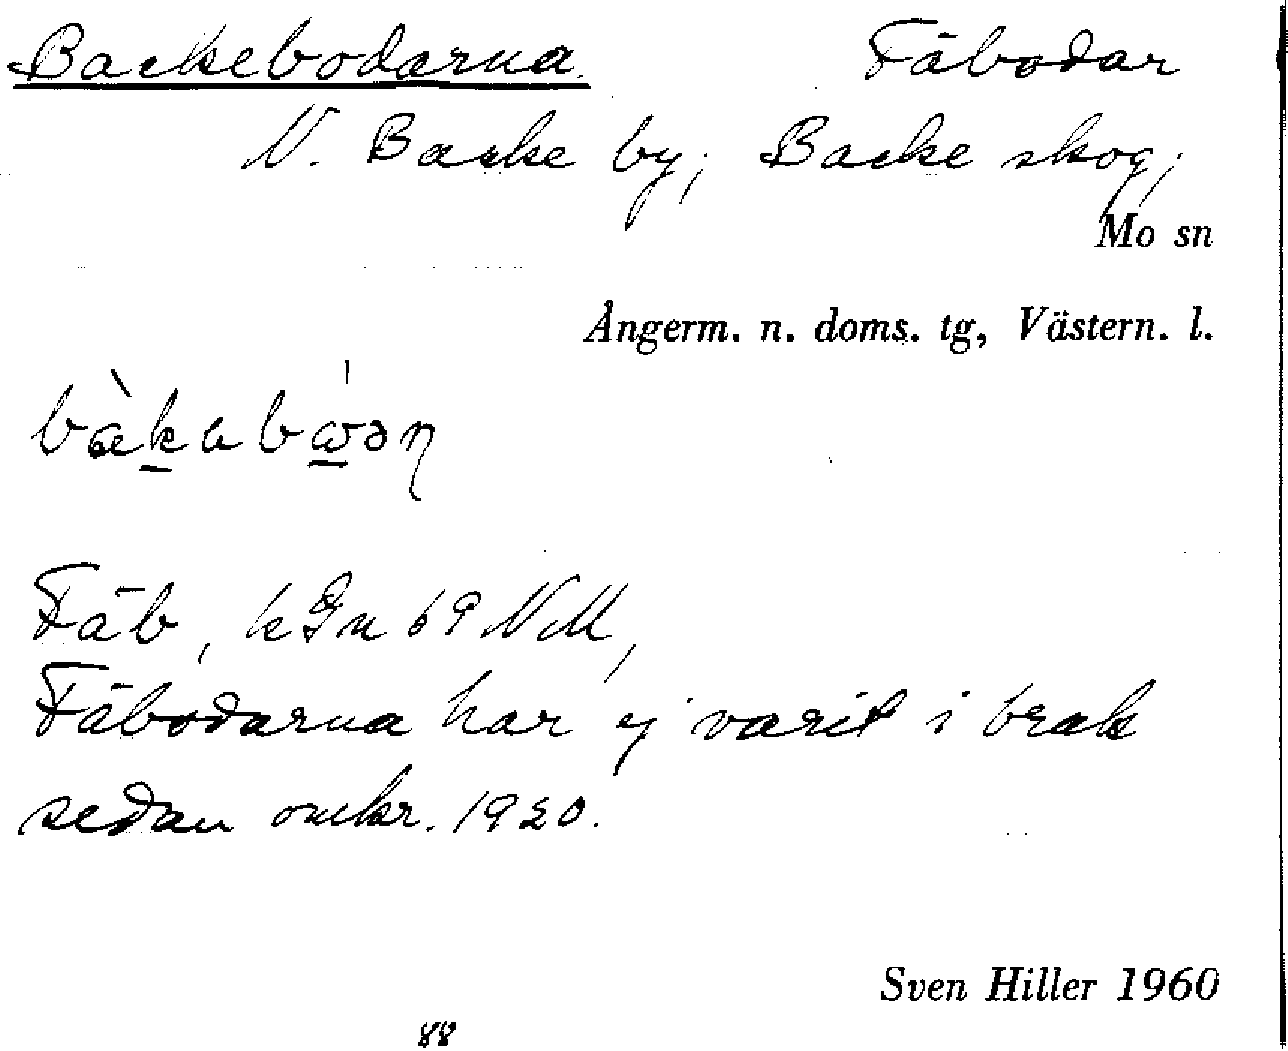 Backebodarna. Fäbodar
N. Backe by; Backe skog;
Mo sn
Ångerm. n. doms. tg, Västern. l.
Fäb, kGn 69 NM,
Fäbodarna har ej varit i bruk
sedan omkr. 1920.
Sven Hiller 1960
88